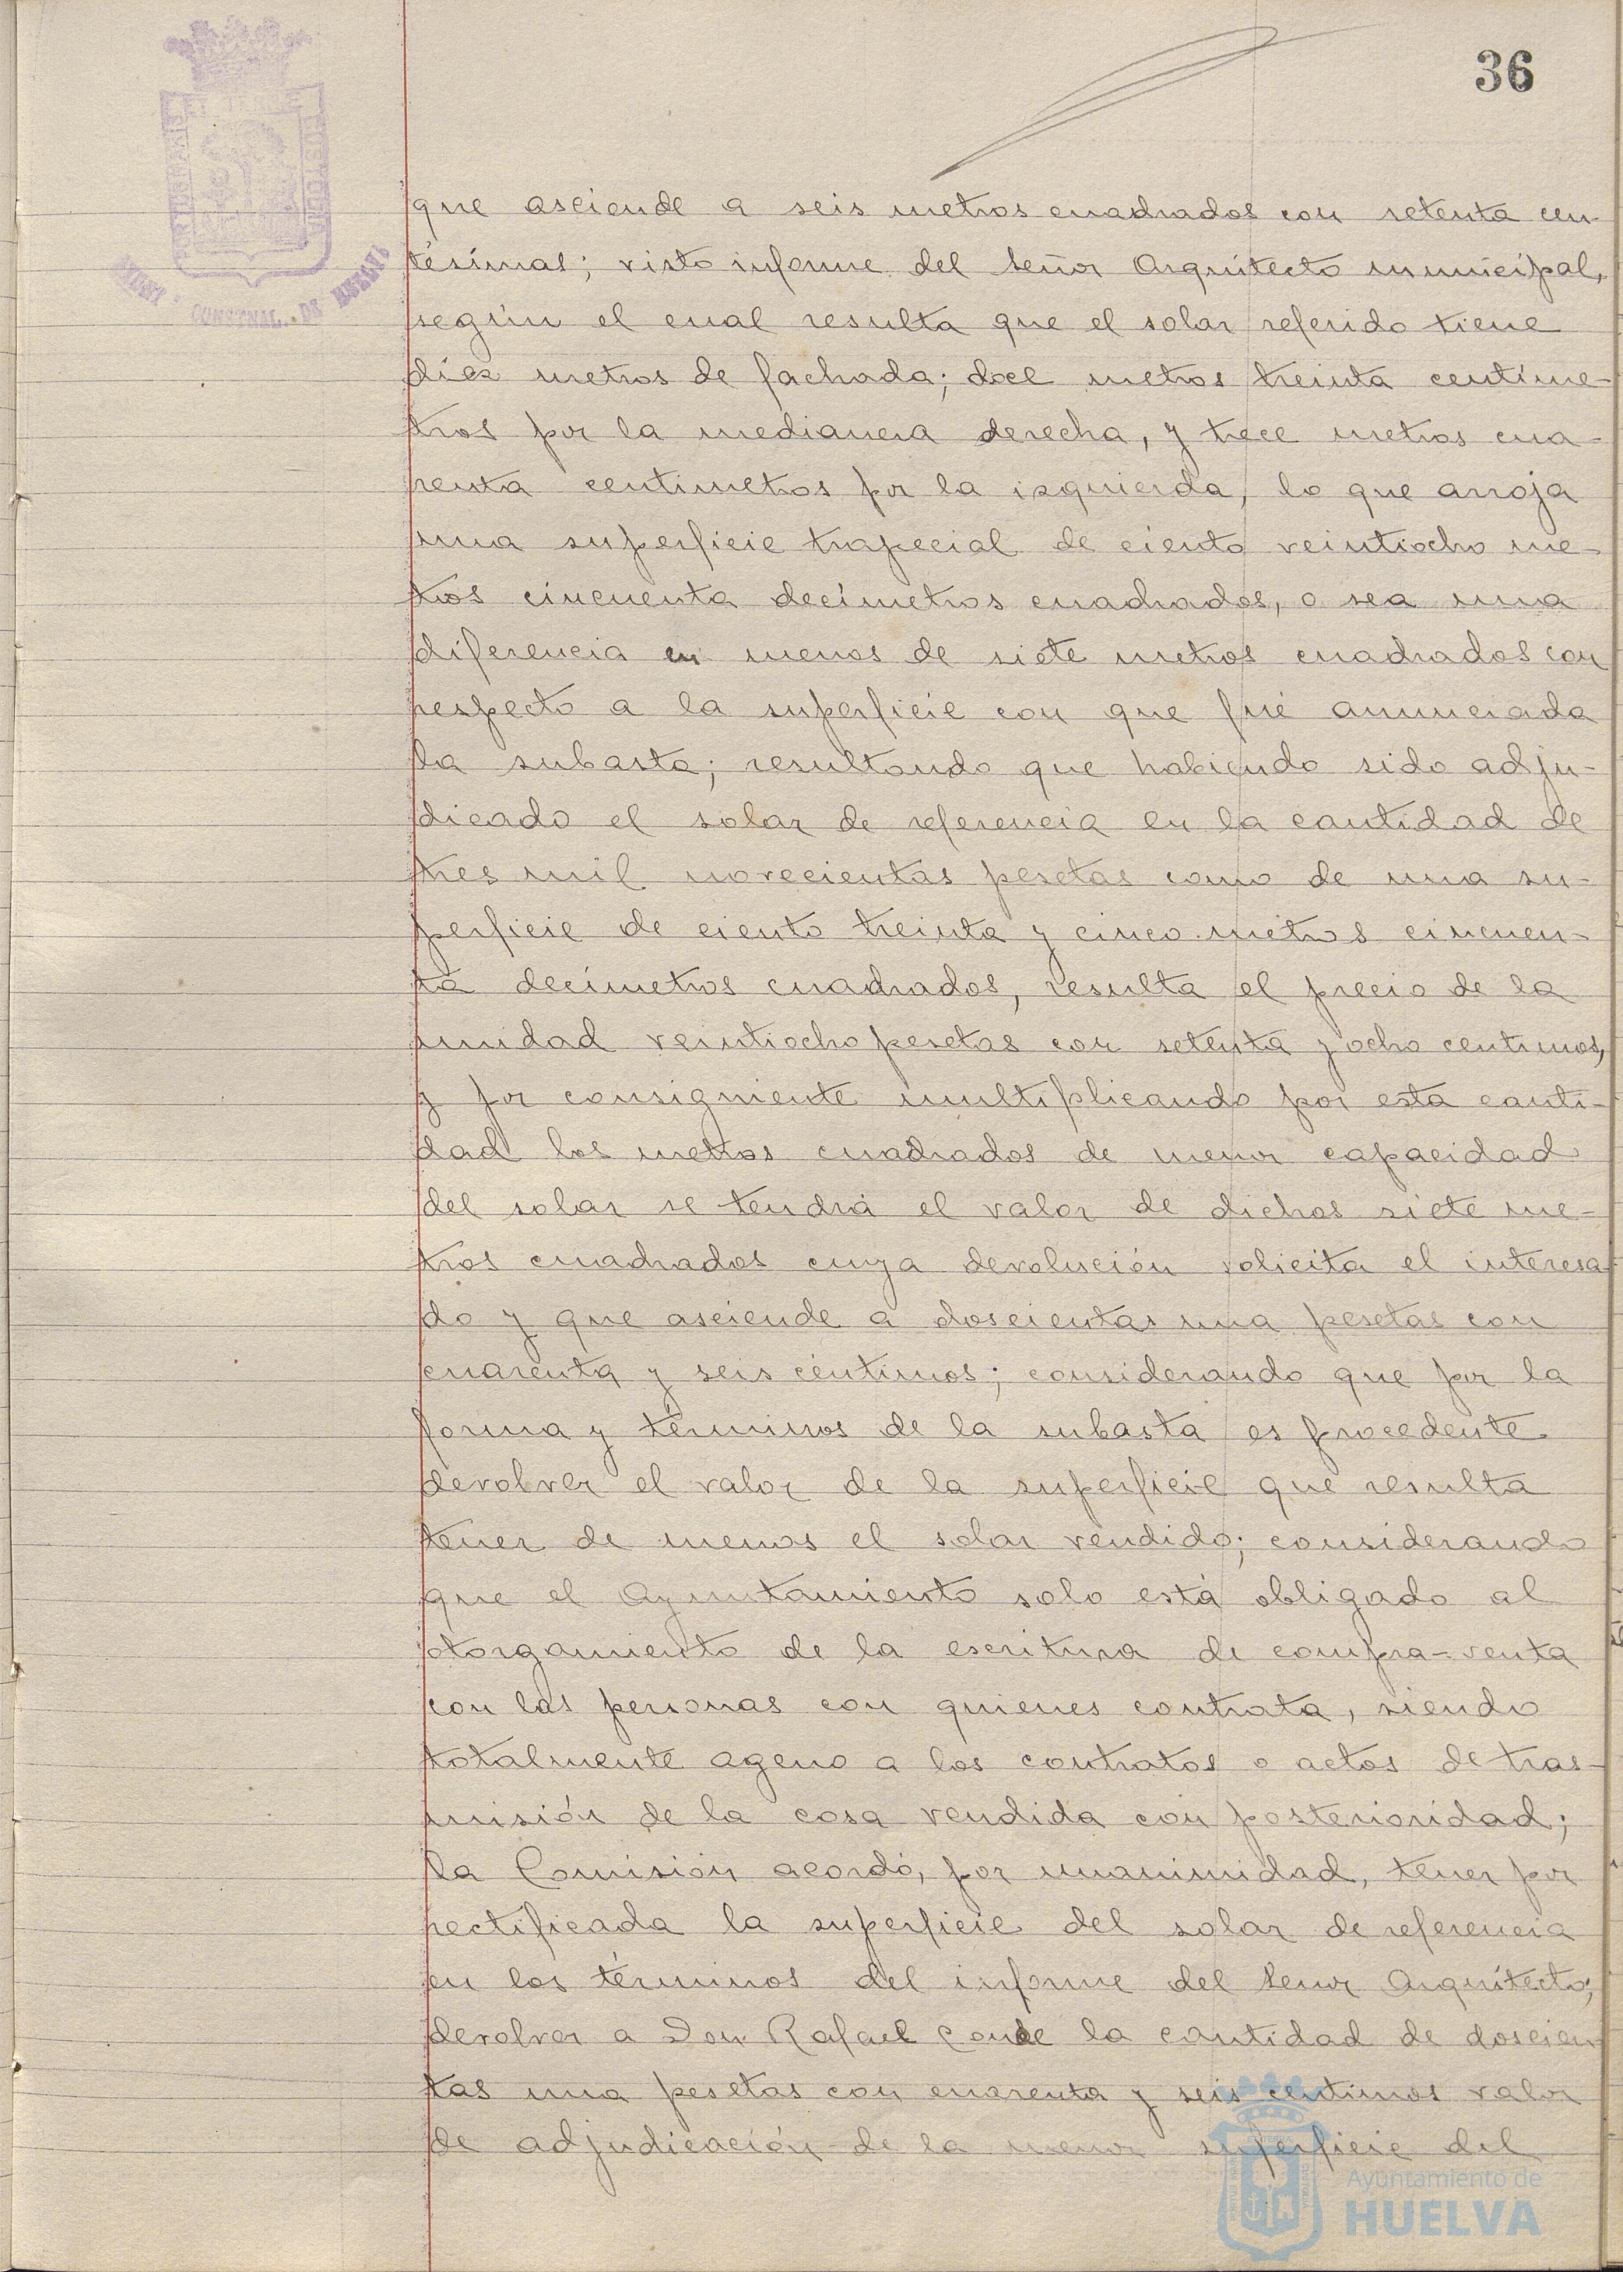 36
que asciende a seis metros cuadrados con setenta cen-
tésimas; visto informe del Señor Arquitecto municipal,
según el cual resulta que el solar referido tiene
diez metros de fachada; doce metros treinta centíme-
tros por la medianera derecha, y trece metros cua-
renta centimetros por la izquierda, lo que arroja
una superficie trapecial de ciento veintiocho me-
tros cincuenta decímetros cuadrados, o sea una
diferencia en menos de siete metros cuadrados con
respecto a la superficie con que fué anunciada
la subasta; resultando que habiendo sido adju-
dicado el solar de referencia en la cantidad de
tres mil novecientas pesetas como de una su-
perficie de ciento treinta y cinco metros cincuen-
ta decímetros cuadrados, resulta el precio de la
unidad veintiocho pesetas con setenta y ocho centimos,
y por consiguiente multiplicando por esta canti-
dad los metros cuadrados de menor capacidad
del solar se tendrá el valor de dichos siete me-
tros cuadrados cuya devolución solicita el interesa-
do y que asciende a doscientas una pesetas con
cuarenta y seis céntimos; considerando que por la
forma y términos de la subasta es procedente
devolver el valor de la superficie que resulta
tener de menos el solar vendido; considerando
que el Ayuntamiento solo está obligado al
otorgamiento de la escritura de compra-venta
con las personas con quienes contrata, siendo
totalmente ageno a los contratos o actos de tras-
misión de la cosa vendida con posterioridad;
la Comisión acordó, por unanimidad, tener por
rectificada la superficie del solar de referencia
en los términos del informe del Señor Arquitecto;
devolver a Don Rafael Conde la cantidad de doscien-
tas una pesetas con cuarenta y seis centimos valor
de adjudicación de la menor superficie del
Ayuntamiento de
HUELVA
CONSTNAL. DE HUELVA